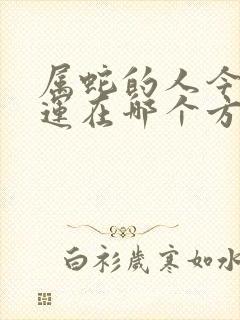 属蛇的人今
運在哪个方
白衫歲寒如水